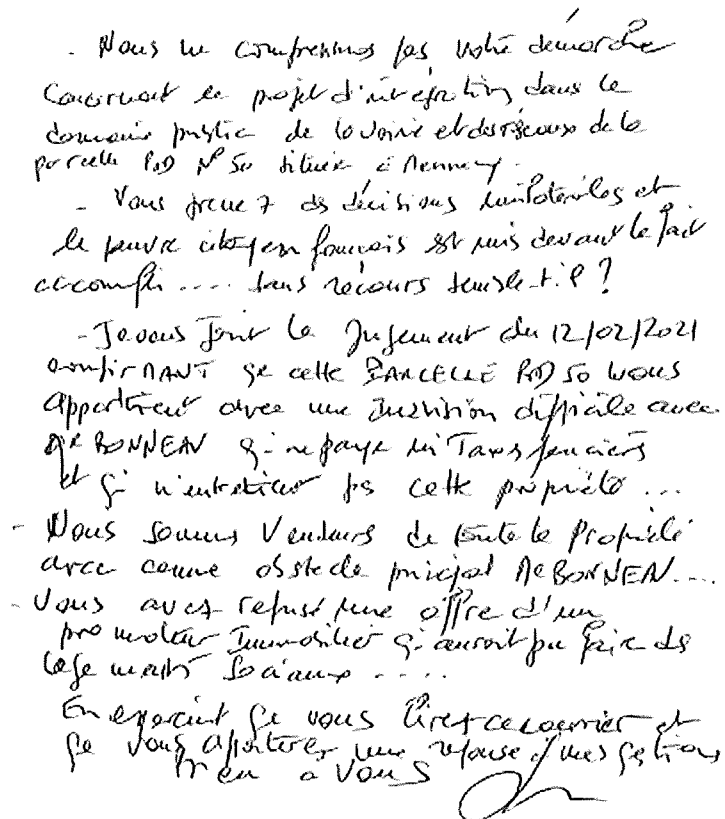 - Nous ne comprenons pas votre démarche
Concernant le projet d'intégration dans le
domaine public de la voirie et des réseaux de la
parcelle N° 50 située à Mennecy.
- Vous prenez des décisions unilatérales et
le pauvre citoyen français est mis devant le fait
accompli .... sans recours semble-t-il ?
- Je vous joint le Jugement du 12/02/2021
confirMANT qe cette PARCELLE 50 nous
appartient avec une Indivision difficile avec
Mr BONNEAU qi ne paye ni Taxes foncières
et qi n'entretient pas cette propriété ...
- Nous sommes Vendeurs de toute la Propriété
avec comme obstacle principal Mr BONNEAU....
- Vous avez refusé une offre d'un
promoteur Immobilier qi aurait pu faire des
logements Sociaux .....
En espérant qe vous lirez ce courrier et
qe vous apporterez une réponse à mes qestions
Bien à Vous